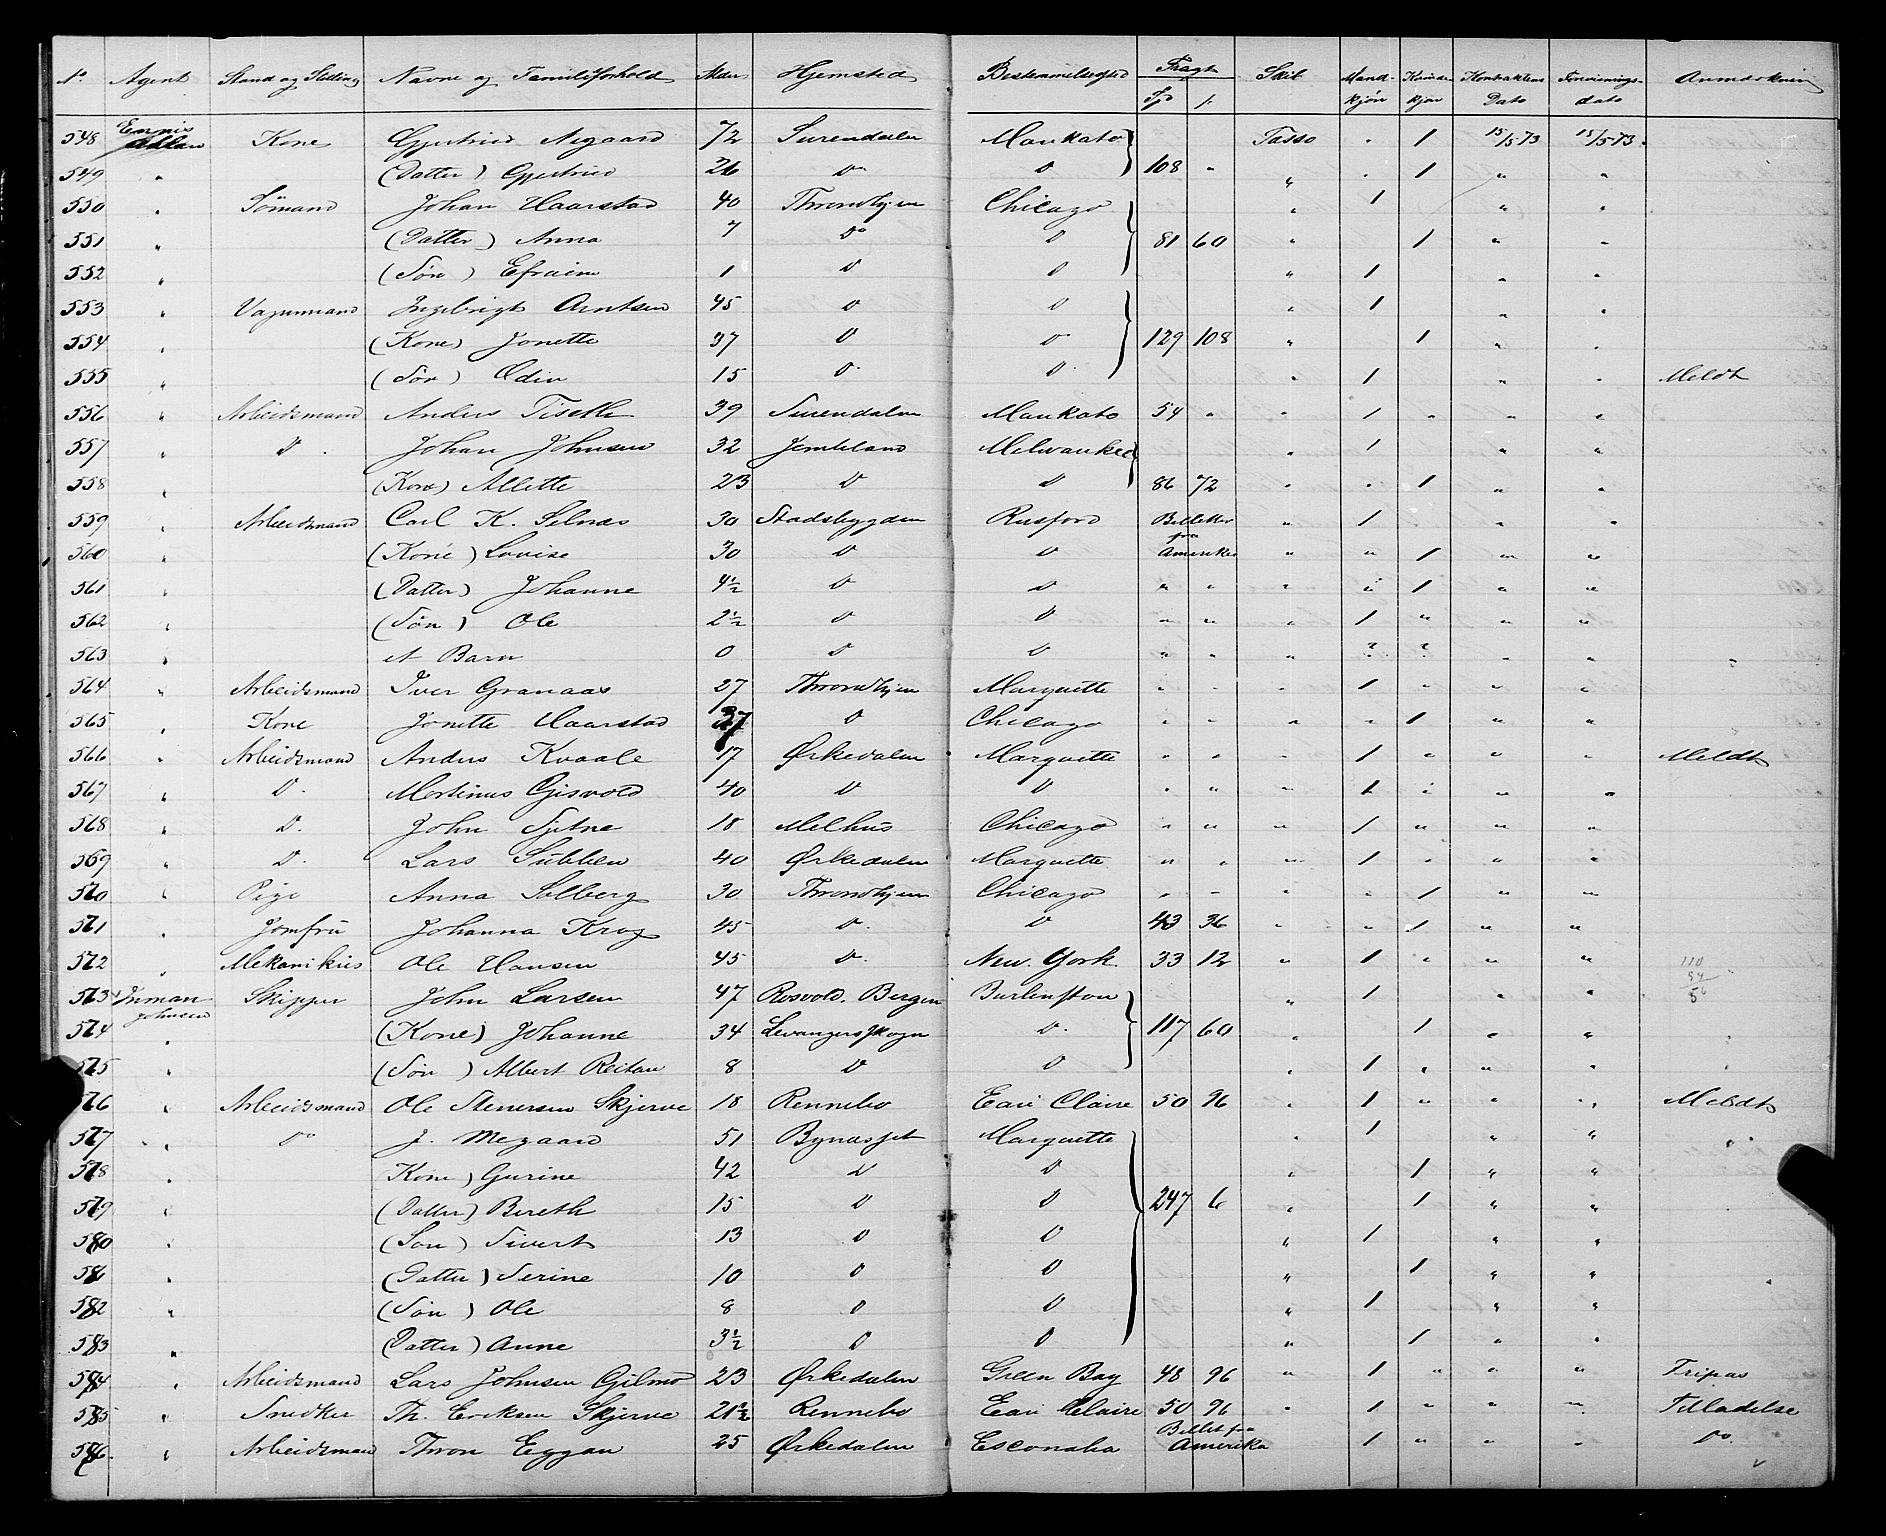 No Agent Stand og Stilling Navne og Familieforhold Alder Hjemsted Bestemmelsessted Fragt Skib Mand- Kvinde- Kontraktens Forevisnings- Anmærkning
Spd ß. kjøn kjøn Dato dato
548 Kone Gjertrud Aagaard 72 Surendalen Mankato Tasso " 1 15/5 73 15/5 73.
549 " (Datter) Gjertrud 26 Do Do 108 " " " 1 " "
550 " Sømand Johan Haarstad 40 Throndhjem Chicago " 1 " "
551 " (Datter) Anna 7 Do Do 81 60 " 1 " "
552 " (Søn) Efraim 1 Do Do " 1 " "
553 " Vognmand Ingebrigt Arntsen 45 Do Do " 1 " "
554 " (Kone) Jonette 37 Do Do 129 108 " 1 " "
555 " (Søn) Odin 15 Do Do " 1 " " Meldt
556 " Arbeidsmand Anders Tiseth 39 Surendalen Mankato 54 " " 1 " " "
557 " Do Johan Johnsen 32 Jemteland Milwaukee " 1 " "
558 " (Kone) Allette 23 Do Do 86 72 " " 1 " "
559 " Arbeidsmand Carl K. Selnæs 30 Stadsbygden Rusford Billetter " 1 " " "
fra
560 " (Kone) Lovise 30 Do Do Amerika " " 1 " "
561 " (Datter) Johanne 4½ Do Do " " " " 1 " "
562 " (Søn) Ole 2½ Do Do " " " 1 " " "
563 " et Barn 0 Do Do " " " ? ? " "
564 " Arbeidsmand Iver Granaas 27 Throndhjem Marquette " " " 1 " " "
565 " Kone Jonette Haarstad 37 Do Chicago " " " " 1 " "
566 " Arbeidsmand Anders Kvaale 17 Ørkedalen Marquette " " " 1 " " " Meldt
567 " Do Martinus Gisvold 40 Do Do " " " 1 " " "
568 " Do John Sætne 18 Melhus Chicago " " " 1 " " "
569 " Do Lars Subben 40 Ørkedalen Marquette " " " 1 " " "
570 " Pige Anna Solberg 30 Throndhjem Chicago " " " " 1 " "
571 " Jomfru Johanna Krog 45 Do Do 43 36 " " 1 " "
572 " Mekanikus Ole Hansen 45 Do New York 33 12 " 1 " " "
573 Inman Skipper John Larsen 47 Rosvold. Bergen Burlington " 1 " "
Johnsen
574 " (Kone) Johanne 34 Levangerskogn Do 117 60 " 1 " "
575 " (Søn) Albert Reitan 8 Do Do " 1 " " "
576 " Arbeidsmand Ole Stenersen Skjerve 18 Rennebo Eau Claire 50 96 " 1 " " " Meldt
577 " Do J. Megaard 51 Bynæsset Marquette " 1 " "
578 " Kone) Gurine 42 Do Do " 1 " "
579 " (Datter) Bereth 15 Do Do 247 6 " 1 " "
580 " (Søn) Sivert 13 Do Do " 1 " "
581 " (Datter) Serine 10 Do Do " 1 " "
582 " (Søn) Ole 8 Do Do " 1 " "
583 " (Datter) Anne 3½ Do Do " 1 " "
584 " Arbeidsmand Lars Johnsen Gilmo 23 Ørkedalen Green Bay 48 96 " 1 " " " Fripas
585 " Snedker Th. Eriksen Skjerve 21½ Rennebo Eau Claire 50 96 " 1 " " " Tilladelse
586. " Arbeidsmand Thron Eggan 25 Ørkedalen Esconaba Billet fra Amerika 1 " " " Do